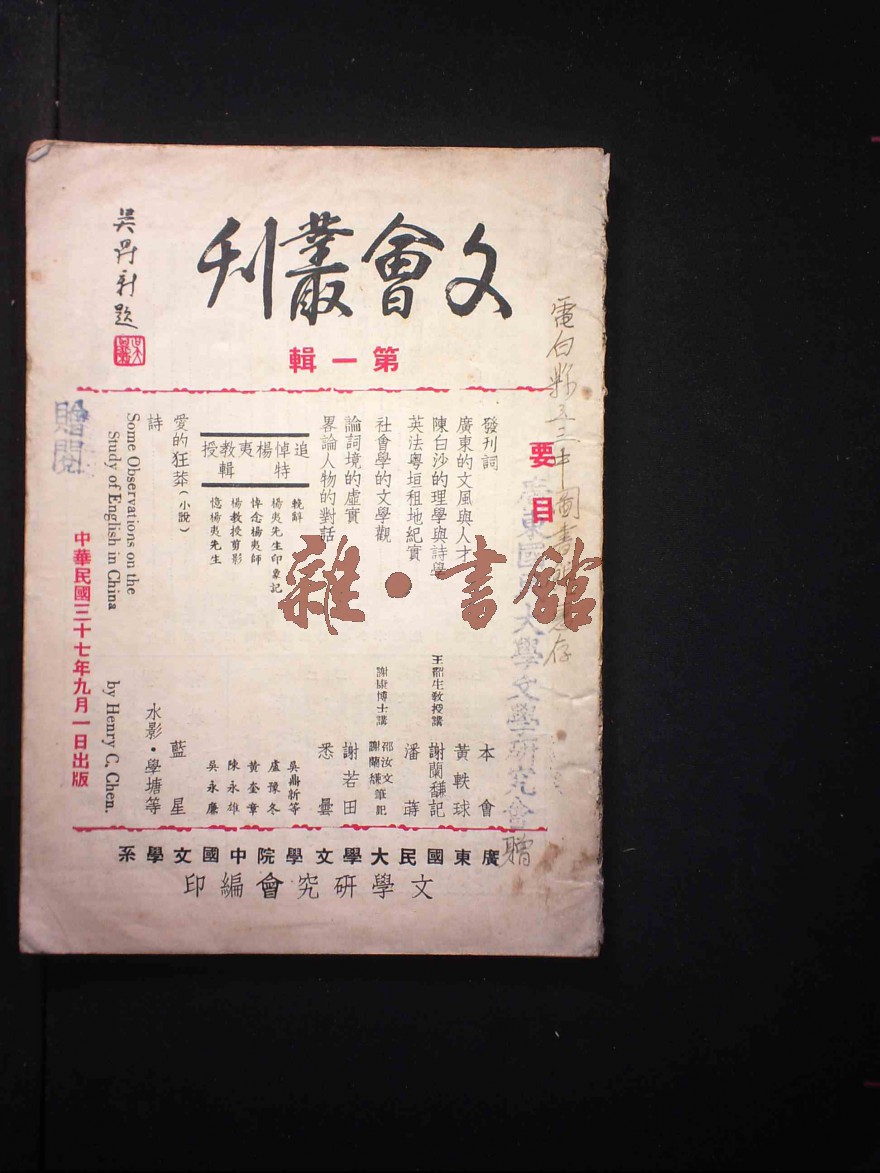 文會叢刊
吳鼎新題
第一輯
要目
發刊詞 本會
廣東的文風與人才 黃軼球
陳白沙的理學與詩學 王韶生敎授講 謝蘭馡記
英法粵垣租地紀實 潘蒔
社會學的文學觀 謝康博士講 邵汝文 謝蘭馡筆記
論詞境的虛實 謝若田
畧論人物的對話 悉曇
追悼楊夷教授特輯
輓辭 吳鼎新等
楊夷先生印象記 盧豫冬
悼念楊夷師 黃奎章
楊教授剪影 陳永雄
憶楊夷先生 吳永廉
愛的狂莽(小說) 藍星
詩 水影・學塘等
Some Observations on the
Study of English in China by Henry C. Chen.
中華民國三十七年九月一日出版
廣東國民大學文學院中國文學系
文學研究會編印
贈閱
電白縣立三中圖書館存
廣東國民大學文學研究會贈
雜・書館